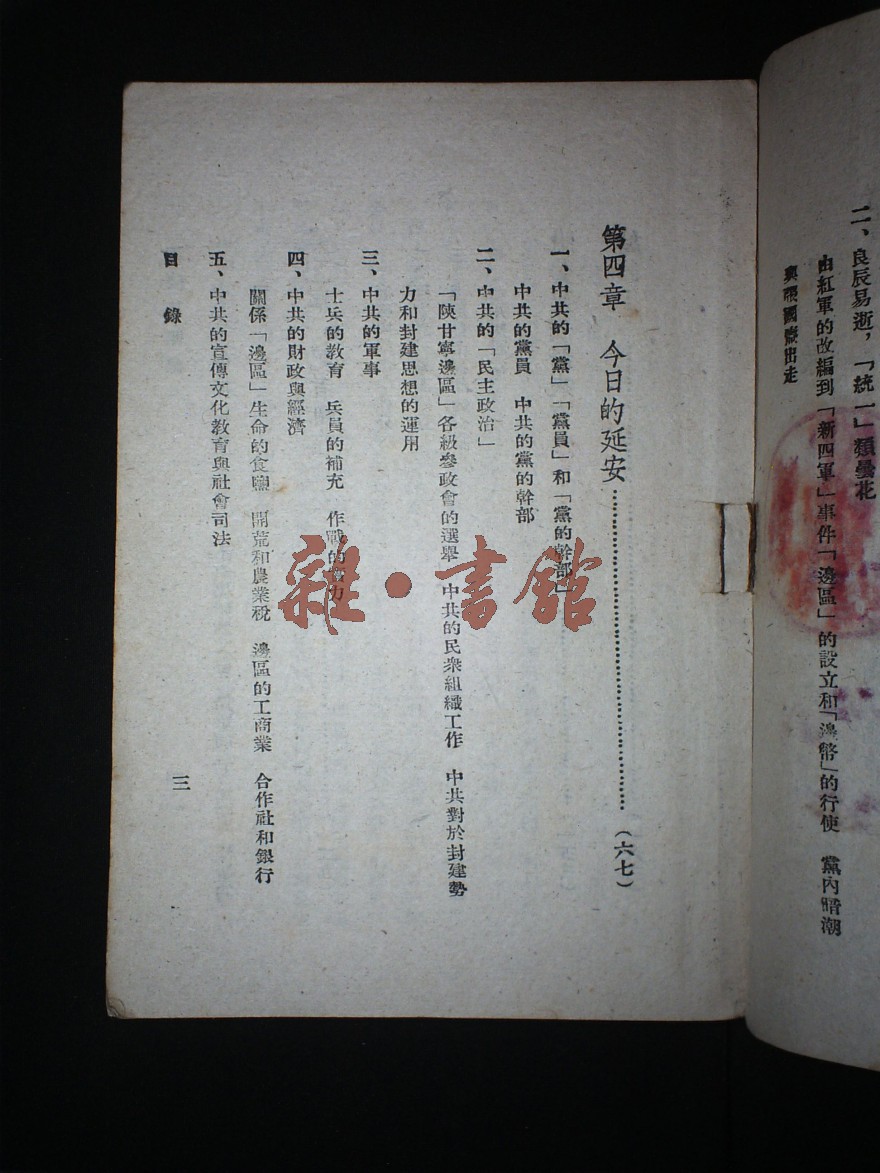 二、良辰易逝，「統一」類曇花
由紅軍的改編到「新四軍」事件「邊區」的設立和「邊幣」的行使　黨內暗潮
與張國燾出走
第四章　今日的延安……………………………………（六七）
一、中共的「黨」「黨員」和「黨的幹部」
中共的黨員　中共的黨的幹部
二、中共的「民主政治」
「陝甘寧邊區」各級參政會的選舉　中共的民衆組織工作　中共對於封建勢
力和封建思想的運用
三、中共的軍事
士兵的教育　兵員的補充　作戰的　力
四、中共的財政與經濟
關係「邊區」生命的食鹽　開荒和農業稅　邊區的工商業　合作社和銀行
五、中共的宣傳文化教育與社會司法
目錄
三
雜·書館